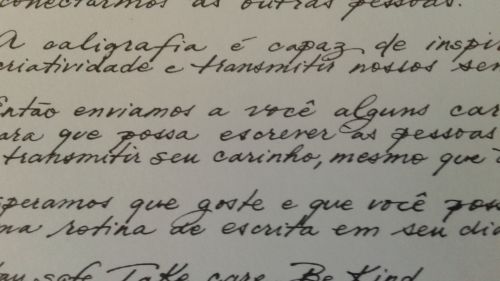 conectarmos às outras pessoas.
A caligrafia é capaz de inspi
criatividade e transmitir nossos sen
Então enviamos a você alguns car
ara que possa escrever às pessoas
transmitir seu carinho, mesmo que
speramos que goste e que você poss
ma rotina de escrita em seu dia
tay safe Take care Be Kind